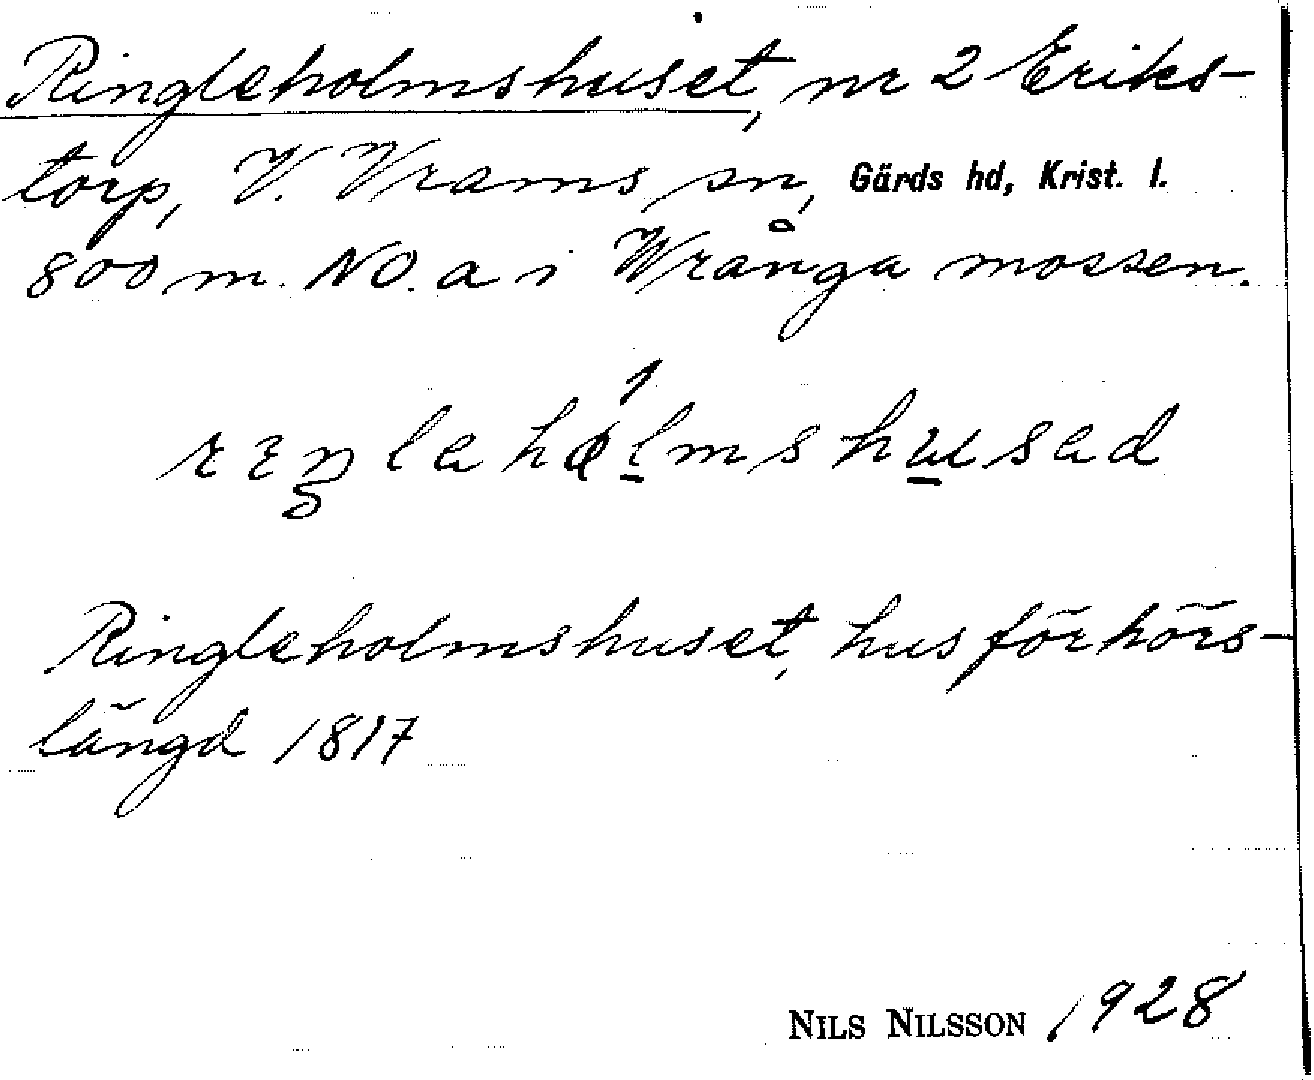 Ringleholmshuset, nr 2 Eriks-
torp, V. Vrams sn, Gärds hd, Krist. l.
800 m. NO. a i Wrånga mossen.
Ringleholmshuset, husförhörs-
längd 1817
NILS NILSSON 1928